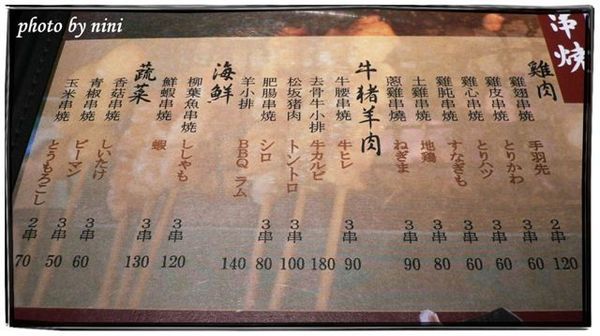 photo by nini
串燒
雞肉
雞翅串燒 手羽先 2串 120
雞皮串燒 とりかわ 3串 60
雞心串燒 とりハツ 3串 60
雞肫串燒 すなぎも 3串 60
土雞串燒 地鶏 3串 80
蔥雞串燒 ねぎま 3串 90
牛猪羊肉
牛腰串燒 牛ヒレ 3串 90
去骨牛小排 牛カルビ 3串 180
松坂猪肉 トントロ 3串 100
肥腸串燒 シロ 3串 80
羊小排 BBQ ラム 140
海鮮
柳葉魚串燒 ししゃも 3串 120
鮮蝦串燒 蝦 3串 130
蔬菜
香菇串燒 しいたけ 3串 60
青椒串燒 ピーマン 3串 50
玉米串燒 とうもろこし 2串 70